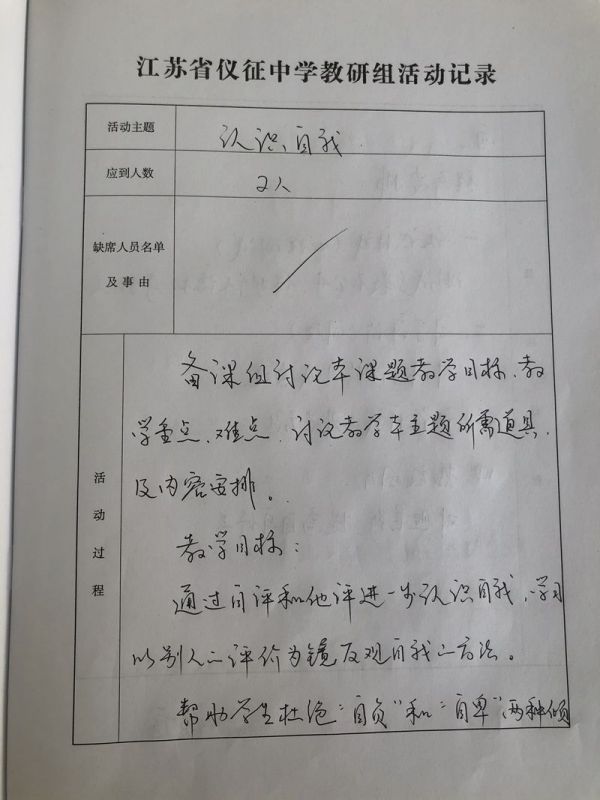 江苏省仪征中学教研组活动记录
活动主题
认识自我
应到人数
2人
缺席人员名单
及事由
活动过程
备课组讨论本课题教学目标、教
学重点、难点、讨论教学本主题所需道具
及内容安排。
教学目标:
通过自评和他评进一步认识自我,学习
以别人的评价为镜反观自我的方法。
帮助学生杜绝“自负”和“自卑”两种倾